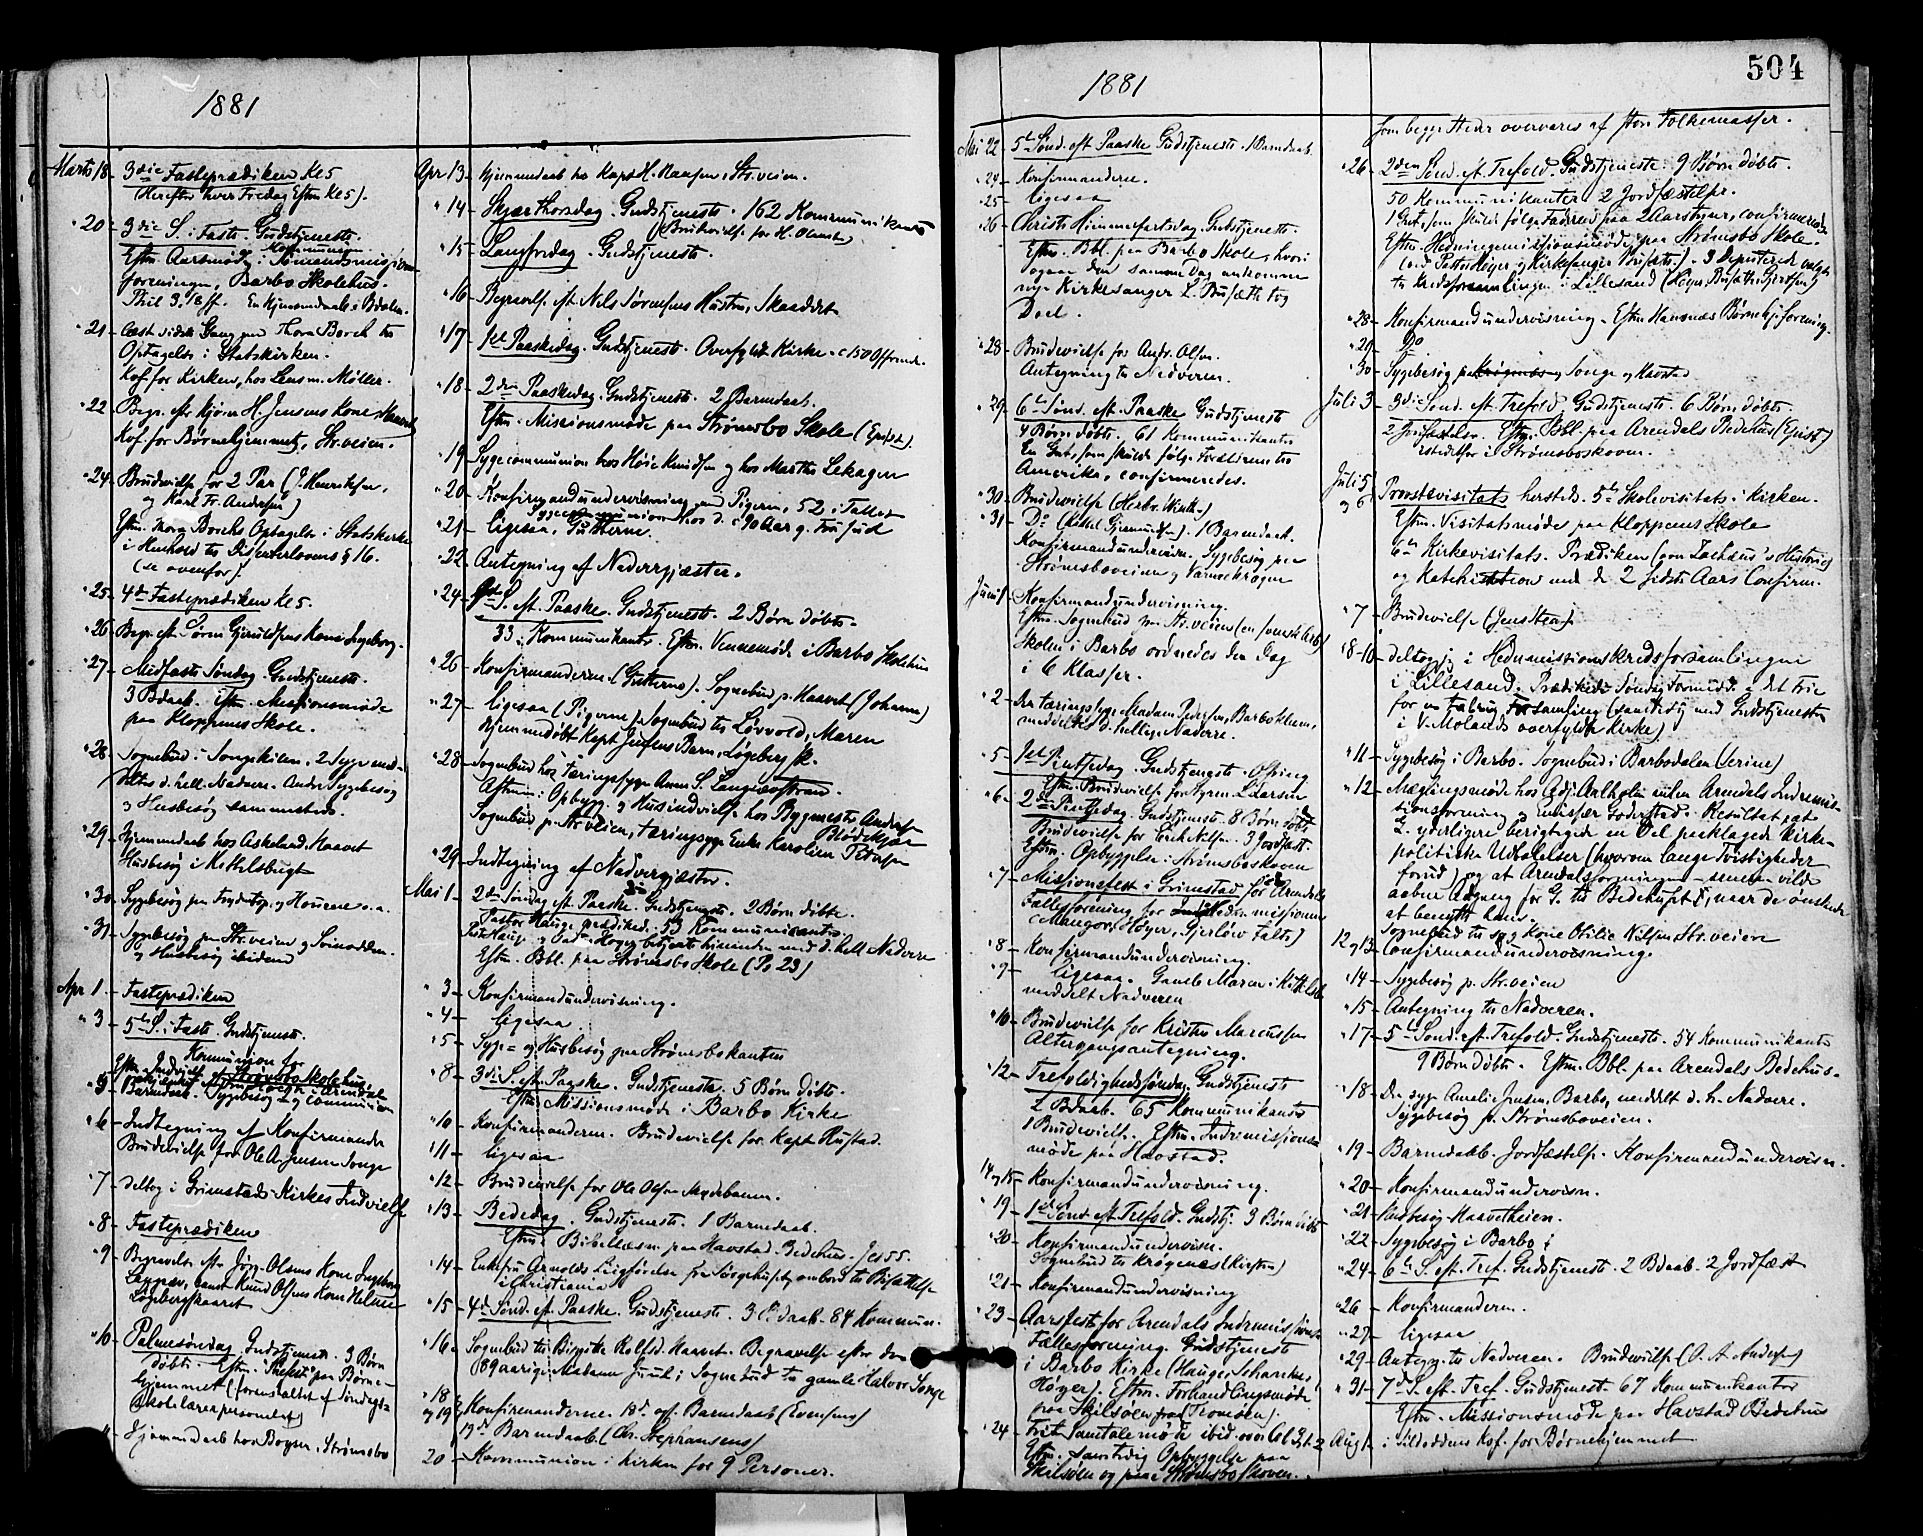 504
1881
Marts 18 - 3die Fasteprædiken Kl 5
(Herefter hver Fredag Eftm Kl 5).
" 20 - 3die S. i Faste. Gudstjeneste.
Eftm Aarsmøde i
foreningen, Barbo Skolehus.
Phil 3.
" 21 -
Optagelse i Statskirken.
Kof. for Kirken, hos Lensm. Møller.
" 22 - Begr. eftr Bjørn H. Jensens Kone,
Kof. for Børnehjemmet, Str.veien.
" 24 - Brudevielse for 2 Par (J. Henriksen,
og Karl Fr. Andersen)
Eftm. Thora Borchs Optagelse i Statskirke
i Henhold til Dissenterlovens § 16.
(se ovenfor).
" 25 - 4de Fasteprædiken Kl 5.
" 26 - Begr. eft. Søren Gjeruldsens Kone Ingeborg.
" 27 - Midfaste Søndag. Gudstjeneste.
3 Bdaab. Eftm. Missionsmøde
paa Kloppens Skole.
" 28 - Sognebud i Songekilen. 2 Syge med-
deltes d. hell. Nadvere. Andre Sygebesøg
og Husbesøg sammesteds.
" 29 - Hjemmedaab hos Askeland, Haavet
Husbesøg i Kittelsbugt
" 30 - Sygebesøg paa
" 31 - Sygebesøg paa Str.veien og Svinodden.
og Husbesøg ibidem
Apr 1 - Fasteprædiken
" 3 - 5te S. i Faste. Gudstjeneste.
Kommunion for
" 5 - Barnedaab. Sygebesøg og communion
" 6 - Indtegning af Konfirmander
Brudevielse for Ole A. Jensen Songe
" 7 - deltog i Grimstads Kirkes Indvielse
" 8 - Fasteprædiken
" 9 - Begravelse eftr Jørg. Olsens Kone Ingeborg
samt Knud Olsens Kone Helene
Løgebergskaaret
" 10 - Palmesøndag Gudstjeneste. 3 Børn
døbte. Eftm. paa Børne-
hjemmet (foranstaltet af Søndags-
skolelærerpersonalet)
" 11 - Hjemmedaab hos Boysen, Strømsbo
Apr 13 - Hjemmedaab hos Kapt H. Hansen, Str.veien.
" 14 - Skjærthorsdag. Gudstjeneste. 162 Kommunikanter
(Brudevielse for H. Olsen)
" 15 - Langfredag. Gudstjeneste.
" 16 - Begravelse eft. Nils Sørensens Hustru, Skaaret
" 17 - 1ste Paaskedag. Gudstjeneste. Overfyldt Kirke.
" 18 - 2den Paaskedag. Gudstjeneste. 2 Barnedaab.
Eftm. Missionsmøde paa Strømsbo Skole
" 19 - Sygecommunion hos Høie Knudsen og hos Marthe Lekagen
" 20 - Konfirmandundervisning med Pigerne, 52 i Tallet
" 21 - ligesaa, Gutterne.
" 22 - Antegning af Nadvergjæster.
" 24 - 1ste S. eft. Paaske. Gudstjeneste. 2 Børn døbte.
33 Kommunikanter. Eftm. Vennemøde i Barbo Skolehus
" 26 - Konfirmanderne (Gutterne). Sognebud p. Haavet (Johanne)
" 27 - ligesaa (Pigerne). Sognebud til Løvvold, Maren
Hjemmedøbt Kapt Jensens Barn, Løgeberg sk.
" 28 - Sognebud hos tæringssyge Anna S. Langsæstrand
Aftenen: Opbygg. og Husindvielse hos Bygmester Andersen
Blødekjær
Sognebud p. Str.veien, tæringssyge Enke Karoline Petersen
" 29 - Indtegning af Nadvergjæster.
Mai 1 - 2den Søndag eft. Paaske. Gudstjeneste. 2 Børn døbte.
Pastor Hauge prædikede. 53 Kommunikanter.
Past Hauge og Pastor Høyer betjente hinanden med d. hell Nadvere
Eftm. Bbl. paa Strømsbo Skole (Ps 23)
" 3 - Konfirmandundervisning.
" 4 - ligesaa.
" 5 - Syge- og Husbesøg paa Strømsbokanten
" 8 - 3die S. eft. Paaske. Gudstjeneste. 5 Børn døbte.
Eftm. Missionsmøde i Barbo Kirke
" 10 - Konfirmanderne. Brudevielse for Kapt Rustad.
" 11 - ligesaa
" 12 - Brudevielse for Ole Olsen
" 13 - Bededag. Gudstjeneste. 1 Barnedaab.
Eftm. Bibellæsn. paa Havstad Bedehus. Jes 55.
" 14 - Enkefru Arnolds Liigførelse fra Sørgehuset ombord til Bisættelse
i Christiania
" 15 - 4de Sønd. eft. Paaske. Gudstjeneste. 3 Bdaab. 84 Kommun.
" 16 - Sognebud til Birgitte Rolfsd. Haavet. Begravelse efter den
89aarige Madame Juul; Sognebud til gamle Halvor Songe
" 18
og 19 - Konfirmanderne. 18de eft. Barnedaab (Evensens)
19de Barnedaab (Chr. Stephansens)
20 - Kommunion i Kirken for 9 Personer.
1881
Mai 22 - 5te Sønd. eft. Paaske Gudstjeneste. 1 Barnedaab.
" 24 - Konfirmanderne.
" 25 - ligesaa
" 26 - Christi Himmelfartsdag. Gudstjeneste.
Eftm. Bbl. paa Barbo Skole, hvori
ogsaa den samme Dag ankomne
nye Kirkesanger L. Busæth tog
Deel.
" 28 - Brudevielse for Andr. Olsen.
Antegning til Nadveren.
" 29 - 6te Sønd. eft. Paaske Gudstjeneste
4 Børn døbte. 61 Kommunikanter
En Gut, som skulde følge Forældrene til
Amerika, confirmeredes.
" 30 - Brudevielse
" 31 - Do 1 Barnedaab.
Konfirmandundervisn. Sygebesøg paa
Strømsboveien og Varnekrogen
Juni 1 - Konfirmandundervisning.
Eftm. Sognebud paa Str.veien
Skolen i Barbo ordnedes den Dag
i 6 Klasser.
" 2 - Den tæringssyge Madam Pedersen, Barbokleven,
meddeltes d. hellige Nadvere.
" 5 - 1ste Pintsedag. Gudstjeneste. Offring
Eftm. Brudevielse for Styrm. L. Larsen
" 6 - 2den Pintsedag. Gudstjeneste. 8 Børn døbte
Brudevielse for Erik Nilsen. 3 Jordfæst.
Eftm. Opbyggelse i Strømsboskoven
" 7 - Missionsfest i Grimstad for Arendals
Fællesforening for Hedn.missionen
(Mangor, Høyer, Gjerløw, Falts)
" 8 - Konfirmandundervisning.
" 9 - ligesaa. Gamle Maren i Kittelsb.
meddelt Nadveren
" 10 - Brudevielse for Kristen Marcussen
Altergangsantegning.
" 12 - Trefoldighedssøndag. Gudstjeneste
2 Bdaab. 65 Kommunikanter
1 Brudevielse. Eftm. Indremissions-
møde paa Havstad.
14 og 15 - Konfirmandundervisning.
" 19 - 1ste Sønd. eft. Trefold. Gudstj. 3 Børn døbte
" 20 - Konfirmandundervisn.
Sognebud til Krøgenes (Kirsten)
" 21 - Konfirmandundervisning
" 23 - Aarsfest for Arendals Indremissions
Fællesforening. Gudstjeneste
i Barbo Kirke (Hauge,
Høyer). Eftm. Forhandlingsmøde
paa Skilsøen (Tromøen).
" 24 - Frit Samtalemøde ibid. over Col 3,1-2
Eftm. samtidig Opbyggelse paa
Skilsøen og paa Strømsbo Skoven.
som begge Steder overvares af store Folkemasser.
" 26 - 2den Sønd. eft. Trefold. Gudstjeneste. 9 Børn døbte.
50 Kommunikanter 2 Jordfæstelser.
1 Gut, som skulde følge Faderen paa 2 Aars tour, confirmerede
Eftm. Hedningemissionsmøde paa Strømsbo Skole.
(ved Pastor Høyer og Kirkesanger Busæth). 3 Deputerede valgte
til Kredsforsamlingen i Lillesand (Høyer, Busæth, Gjertsen)
" 28 - Konfirmandundervisning. Eftm Havsnæs Børnehj.forening.
" 29 - Do
" 30 - Sygebesøg paa Songe og Havstad
Juli 3 - 3die Sønd. eft. Trefold. Gudstjeneste. 6 Børn døbte.
2 Jordfæstelser. Eftm. Bbl. paa Arendals Bedehus
istedetfor i Strømsboskoven.
Juli 5
og 6 - Provstevisitats hersteds. 5te Skolevisitats i Kirken.
Eftm. Visitatsmøde paa Kloppens Skole
6te Kirkevisitats. Prædiken (om Zachæus's Historie)
og Katechisation med de 2 sidste Aars Confirm.
" 7 - Brudevielse (Jens Stea)
" 8-10 - deltog jeg i Hednmissionskredsforsamlingen
i Lillesand. Prædikede Søndag Formidd. i det Frie
for en talrig Forsamling (samtidig med Gudstjenesten
i V. Molands overfyldte Kirke)
" 11 - Sygebesøg i Barbo. Sognebud i Barbodalen (Serine)
" 12 - Mæglingsmøde hos Adj. Aalholm mellem Arendals Indremis-
sionsforening og Emissær Goderstad. Resultat, at
2. yderligere berigtigede en Del paaklagede kirke-
politiske Udtalelser (hvorom lange Tvistigheder
forud) og at Arendalsforeningen senere vilde
aabne Adgang for G. til Bedehuset, naar de ønskede
at benytte ham.
Sognebud til syg Kone Otilie Nilsen, Str.veien
12 og 13 - Confirmandundervisning.
" 14 - Sygebesøg p. Str.veien
" 15 - Antegning til Nadveren.
" 17 - 5te Sønd. eft. Trefold. Gudstjeneste. 54 Kommunikanter
9 Børn døbte. Eftm. Bbl. paa Arendals Bedehus.
" 18 - Den syge Amelie Jensen, Barbo, meddelt d. h. Nadvere.
Sygebesøg p. Strømsboveien.
" 19 - Barnedaab. Jordfæstelse. Konfirmandundervisn.
" 20 - Konfirmandundervisn.
" 21 - Husbesøg Haavetheien.
" 22 - Sygebesøg i Barbo
" 24 - 6te S. eft. Tref. Gudstjeneste. 2 Bdaab. 2 Jordfæst
" 26 - Konfirmanderne.
" 27 - ligesaa
" 29 - Antegn. til Nadveren. Brudevielse (O. A. Andersen)
" 31 - 7de S. eft. Tref. Gudstjeneste. 67 Kommunikanter
Eftm. Missionsmøde paa Havstad Bedehus
Aug 1 - i Sildodden Kof. for Børnehjemmet